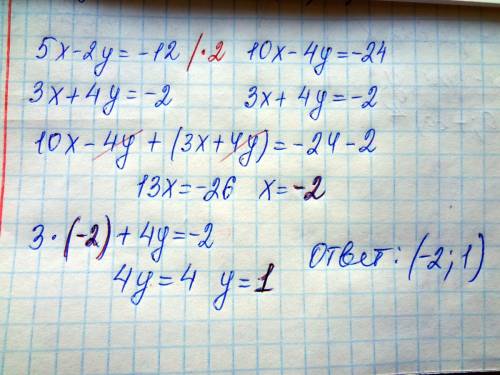 5x-2y=-12 |·2 10x-4y=-24
3x+4y=-2 3x+4y=-2
10x-4y+(3x+4y)=-24-2
13x=-26 x=-2
3·(-2)+4y=-2
4y=4 y=1 Ответ: (-2;1)